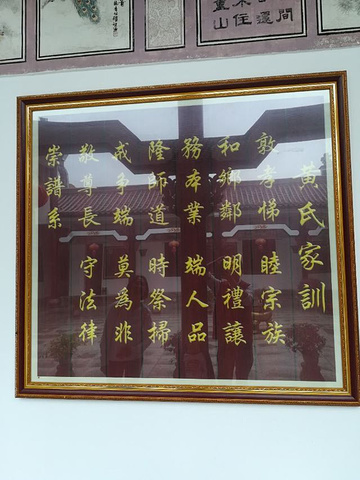 黄氏家訓
敦孝悌 睦宗族
和鄉鄰 明禮讓
務本業 端人品
隆師道 時祭掃
戒爭端 莫為非
敬尊長 守法律
崇譜系